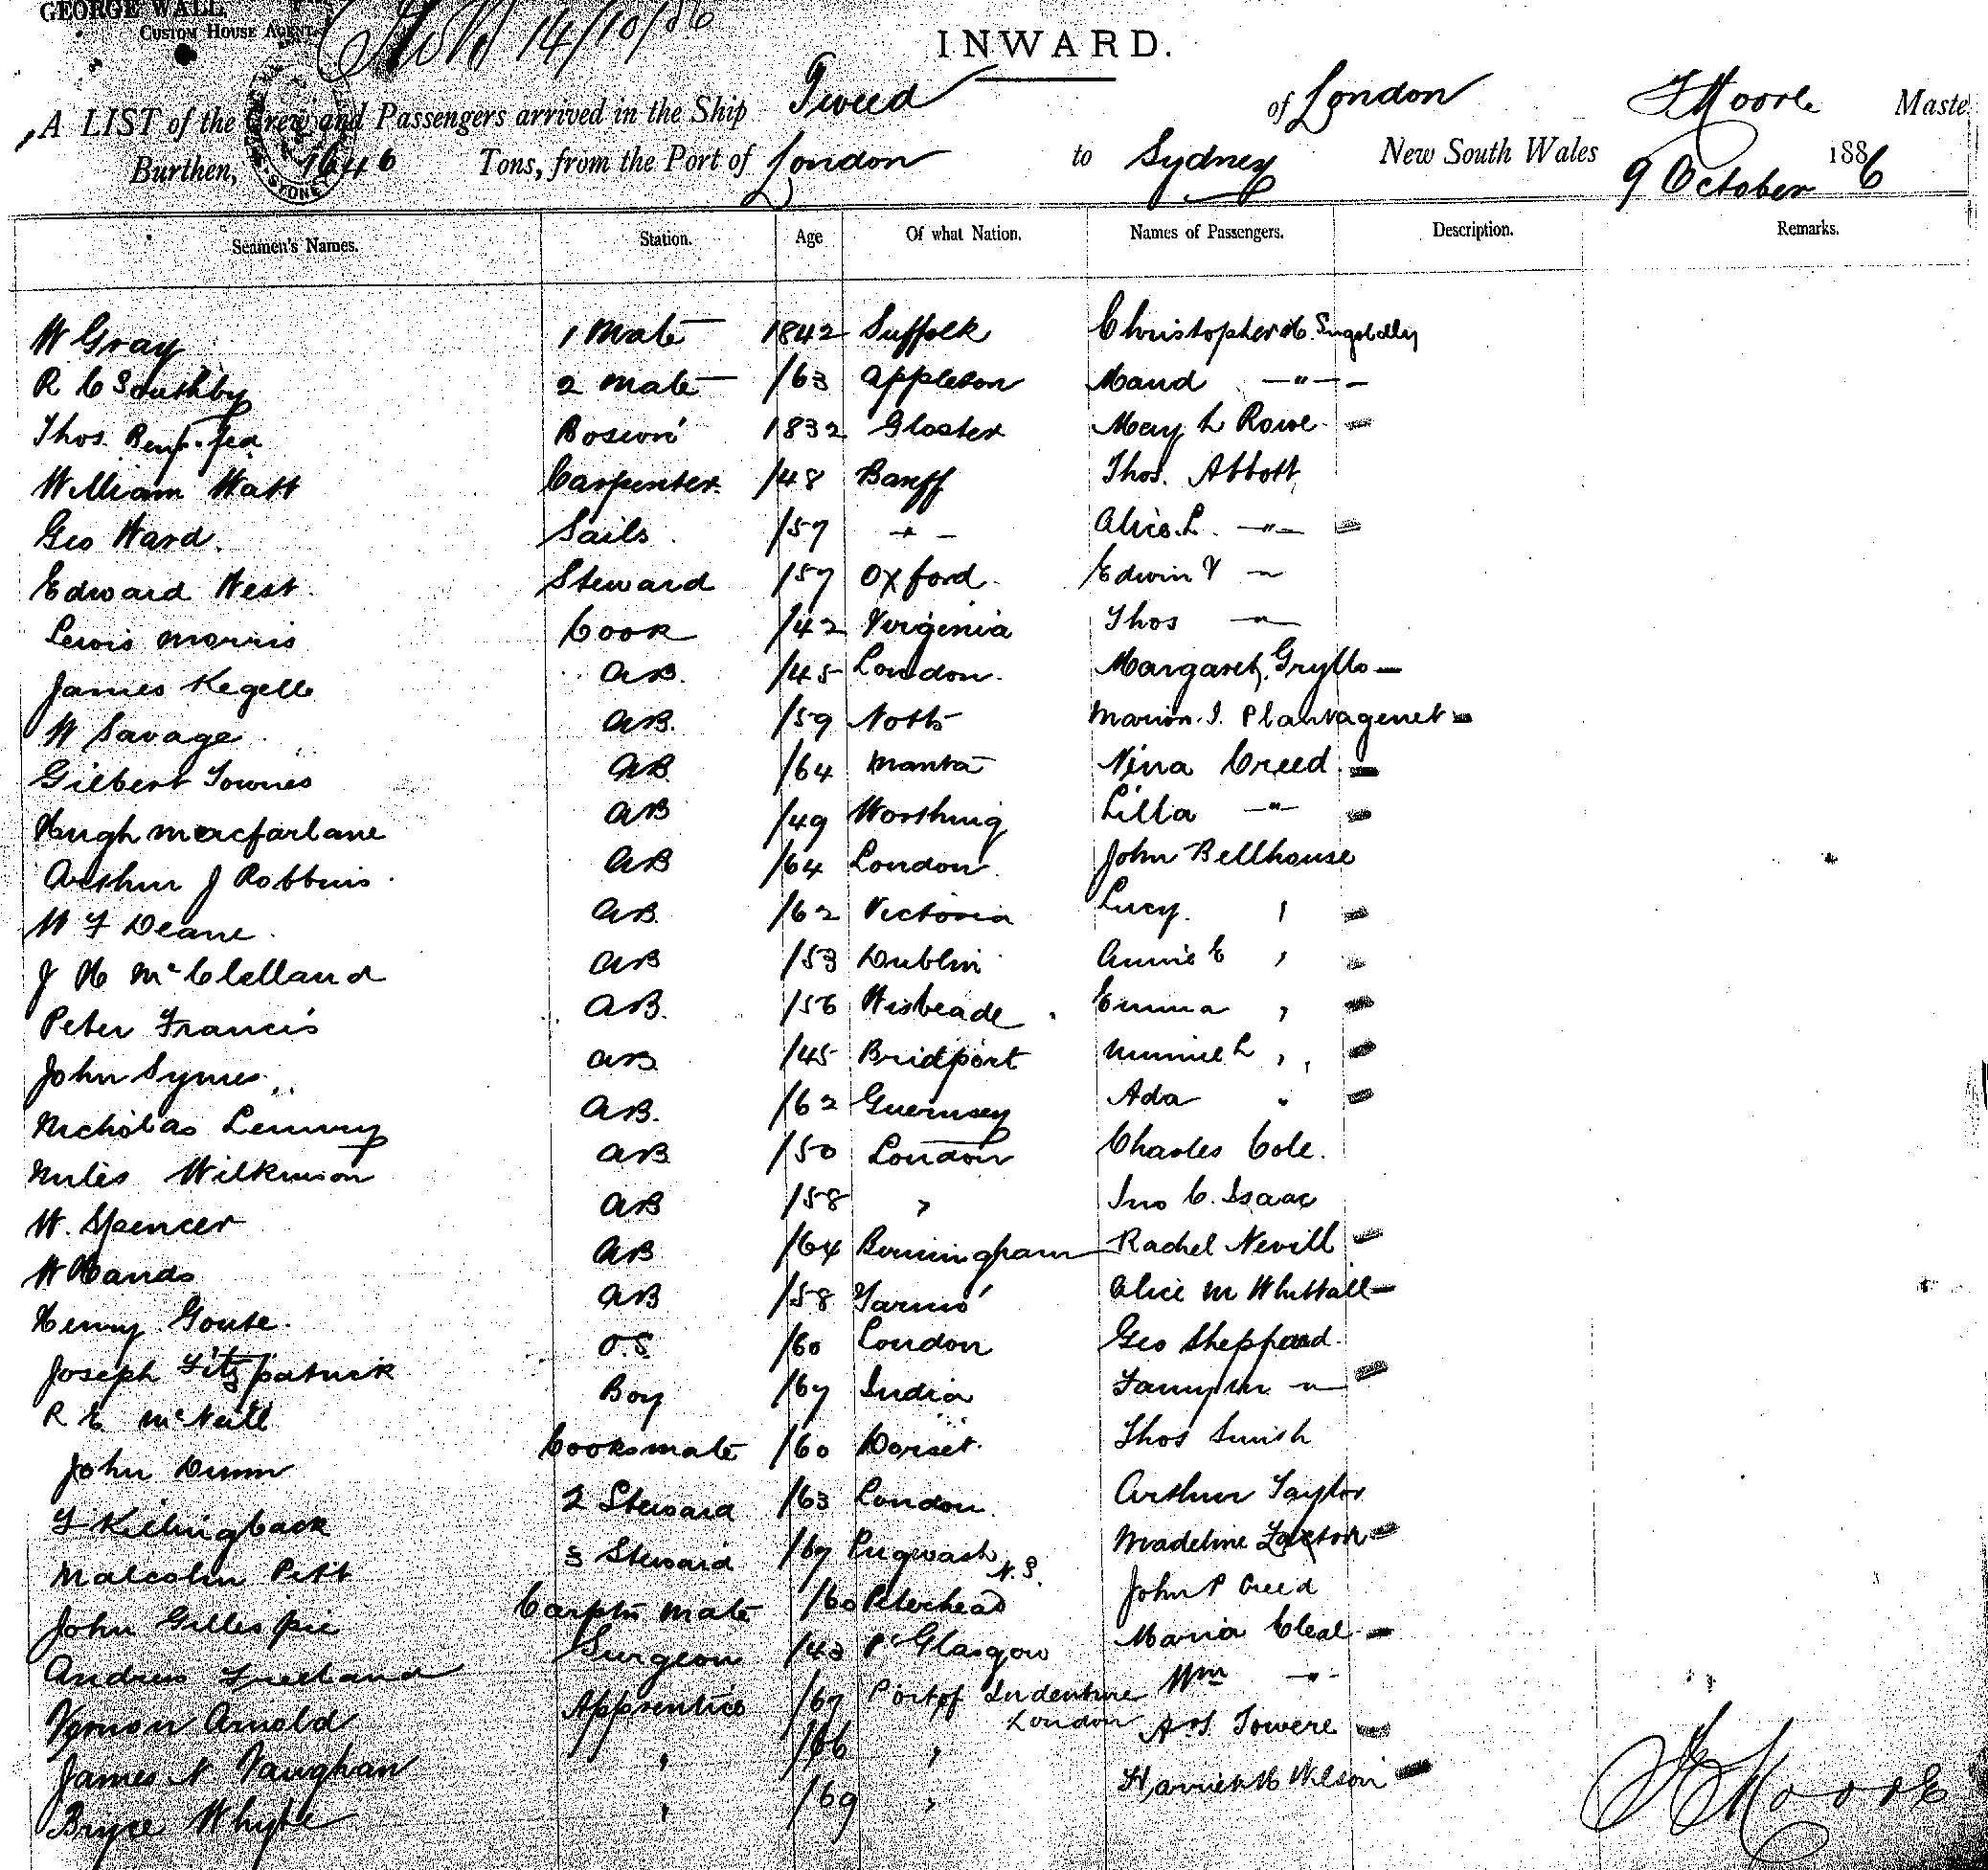 GEORGE WALL,
CUSTOM HOUSE AGENT
14/10/86
INWARD.
A LIST of the Crew and Passengers arrived in the Ship Tweed of London Moore Maste
Burthen, 1646 Tons, from the Port of London to Sydney New South Wales 9 October 1886
Seamen's Names. Station. Age Of what Nation. Names of Passengers. Description. Remarks.
W Gray 1 Mate 1842 Suffolk Christopher H.
R C Southby 2 Mate /63 Appleton Maud —"—
Thos. Bosun' 1832 Gloster May L Rowe
William Watt Carpenter /48 Banff Thos. Abbott
Geo Ward Sails /57 Alice L. —"—
Edward West Steward /57 Oxford Edwin —"—
Lewis Morris Cook /42 Virginia Thos —"—
James Kegelle AB. /45 London. Margaret Grylls —
W Savage AB. /59 Notts Marion. I. Plantagenet
Gilbert Townes AB /64 Nina Creed
Hugh Macfarlane AB /49 Worthing Lilla —"—
Arthur J Robbins AB /64 London John Bellhouse
W F Deane AB. /62 Victoria Lucy.
J H McClelland AB /53 Dublin Annie E ,
Peter Francis AB. /56 Wisbeade Emma ,
John Symes AB /45 Bridport Minnie L ,,
Nicholas AB. /62 Guernsey Ada "
Miles Wilkinson AB /50 London Charles Cole.
W. Spencer AB /58 , Jno C. Isaac
W Hands AB /64 Birmingham Rachel Nevill
Henry Goute. AB /58 Alice M Whittall
Joseph Fitzpatrick O.S. /60 London Geo Sheppard.
R E McNeill Boy /67 India Fanny M —"—
John Dunn Cooks mate /60 Dorset Thos Smith
F Killingback 2 Steward /63 London Arthur Taylor
Malcolm Pitt 3 Steward /67 Pugwash N.S. Madeline
John Gillespie Carptrs Mate /60 Peterhead John P Creed
Andrew Freeland Surgeon /43 Pt Glasgow Maria Cleal
Vernon Arnold Apprentice /67 Port of Indenture London Wm —"—
James N. Vaughan , /66 , Towere
Bryce Whyte , /69 , Harriett H Wilson
Moore